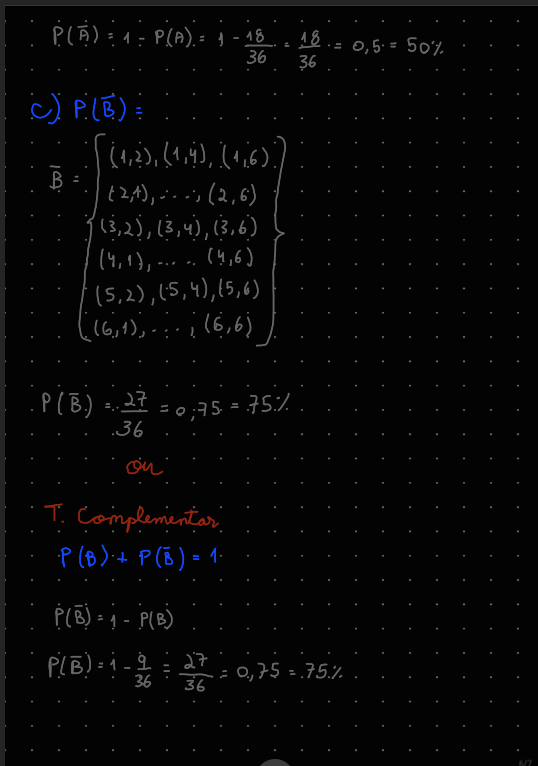 P(A̅) = 1 - P(A) = 1 - 18/36 = 18/36 = 0,5 = 50%
c) P(B̅) =
B̅ = { (1,2), (1,4), (1,6)
(2,1), ...., (2,6)
(3,2), (3,4), (3,6)
(4,1), .... (4,6)
(5,2), (5,4), (5,6)
(6,1), ...., (6,6) }
P(B̅) = 27/36 = 0,75 = 75%
ou
T. Complementar
P(B) + P(B̅) = 1
P(B̅) = 1 - P(B)
P(B̅) = 1 - 9/36 = 27/36 = 0,75 = 75%
6/7